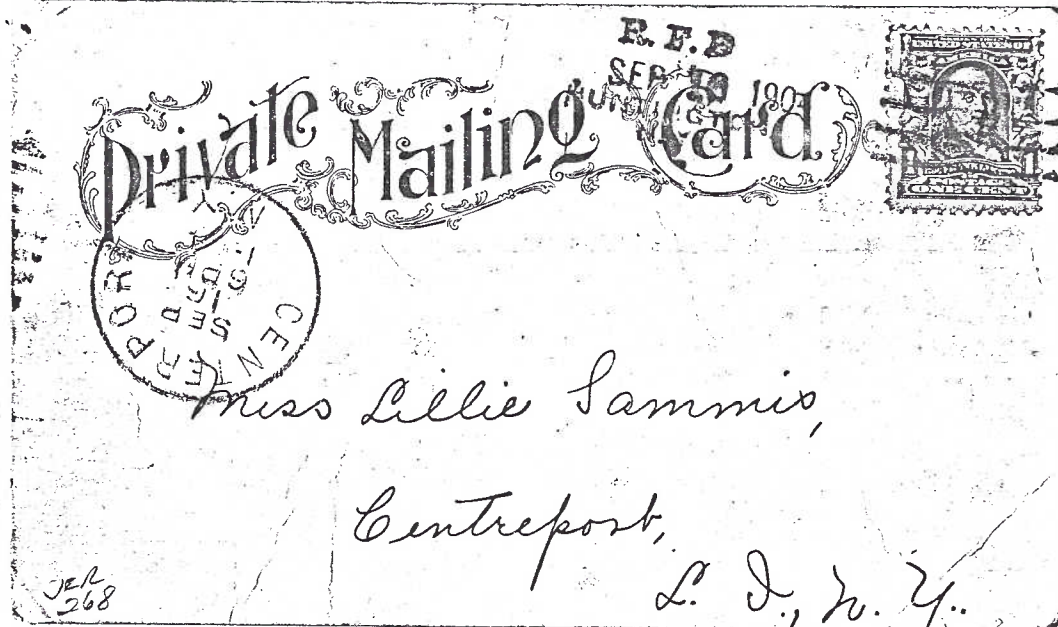 R.F.D
SEP 1904
Private Mailing Card
UNITED STATES OF
ONE CENT
CENTERPORT
N.Y.
SEP
16
Miss Lillie Sammis,
Centreport,
L. I., N. Y..
JER
268